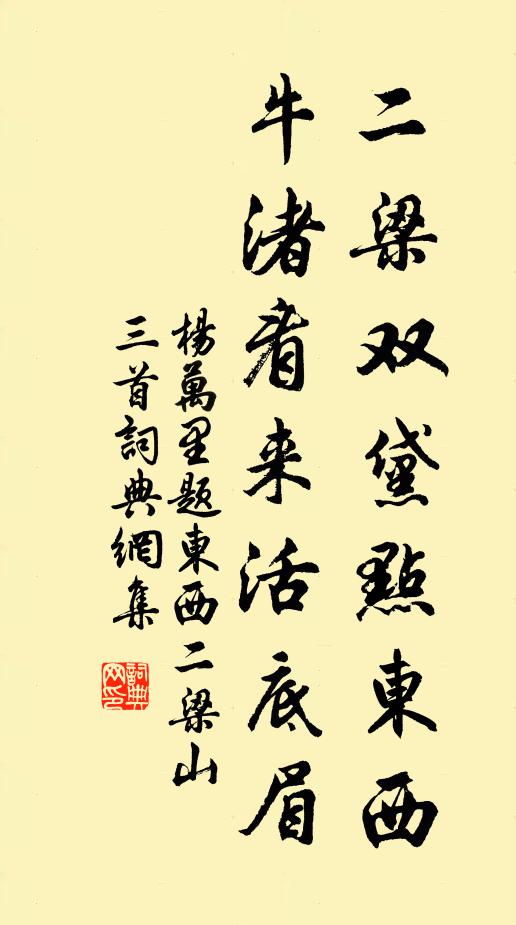 二梁双黛點東西
牛渚看来活底眉
楊萬里题東西二梁山
三首詞典網集
詞典网印